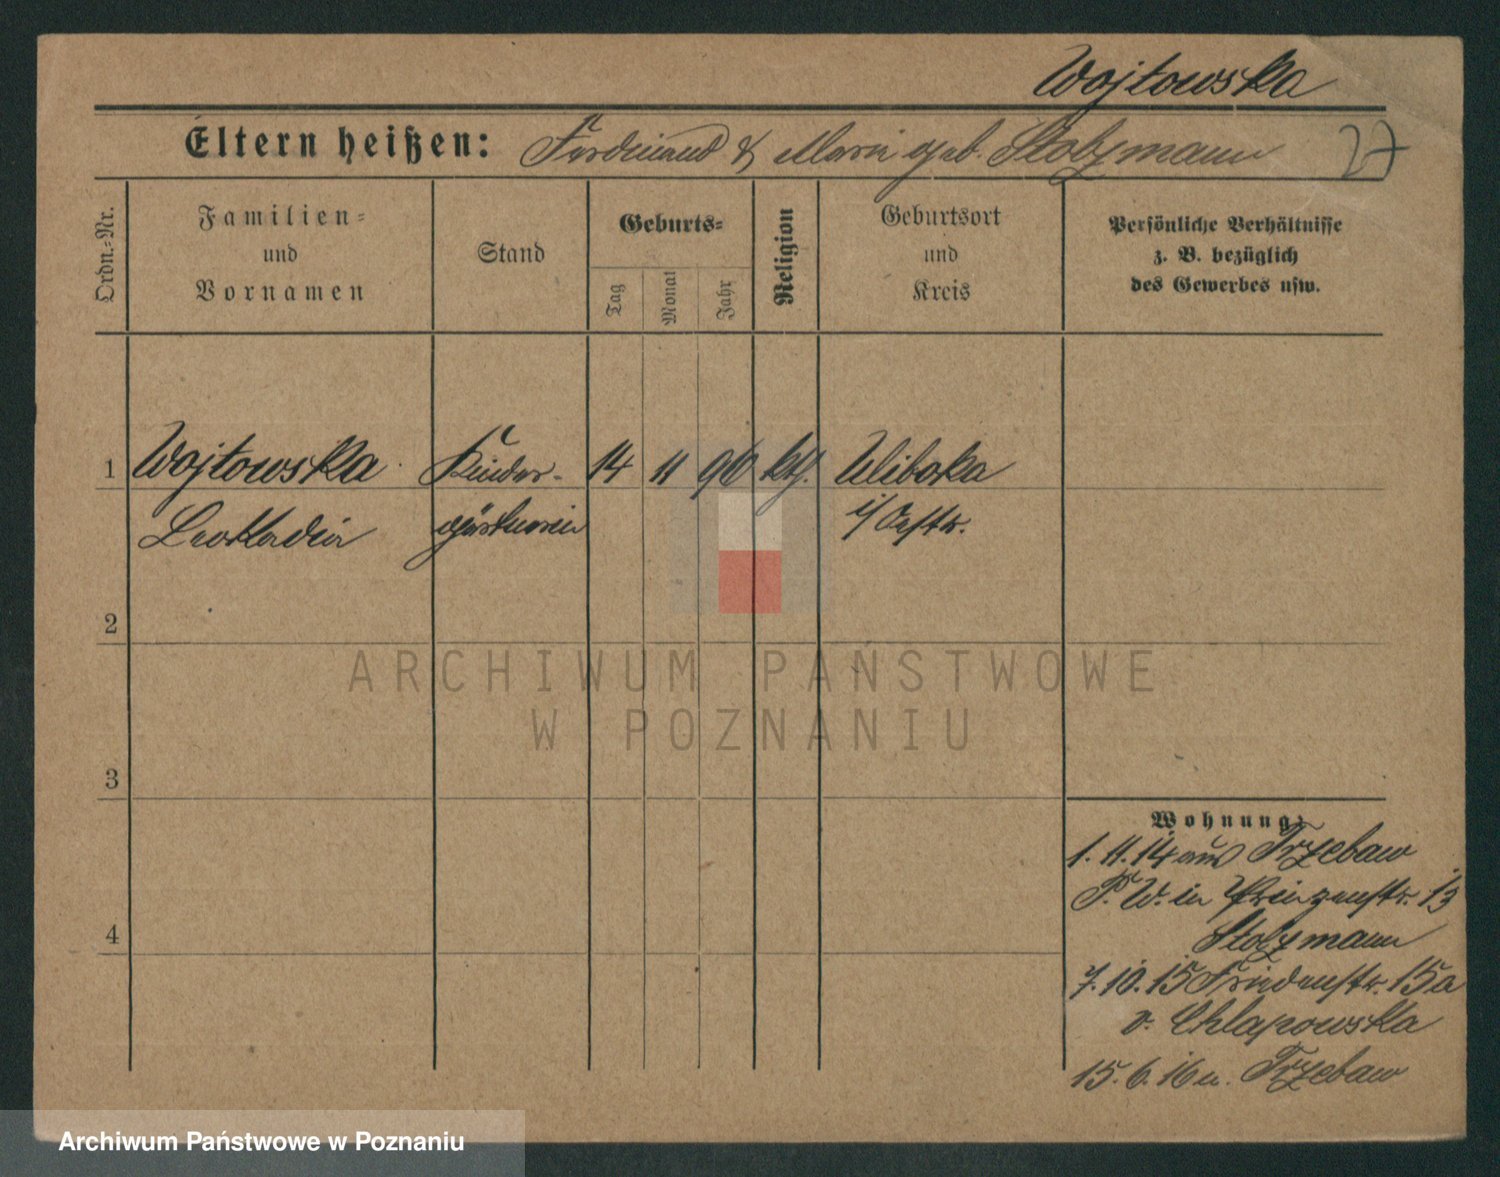 Wojtowska
Eltern heißen: Ferdinand & Marie geb. Stolzmann
27
Ordn.=Nr.
Familien=
und
Vornamen
Stand
Geburts=
Tag
Monat
Jahr
Religion
Geburtsort
und
Kreis
Persönliche Verhältnisse
z. B. bezüglich
des Gewerbes usw.
1 Wojtowska Kinder- 14 11 90 kth.
Leokadia gärtnerin i/Oestr.
2
ARCHIWUM PAŃSTWOWE
W POZNANIU
3
4
Wohnung:
1.11.14 aus Trzebaw
P. W. in Prinzenstr. 13
Stolzmann
7.10.15 Friedenstr. 15a
v. Chlapowska
15.6.16 n. Trzebaw
Archiwum Państwowe w Poznaniu